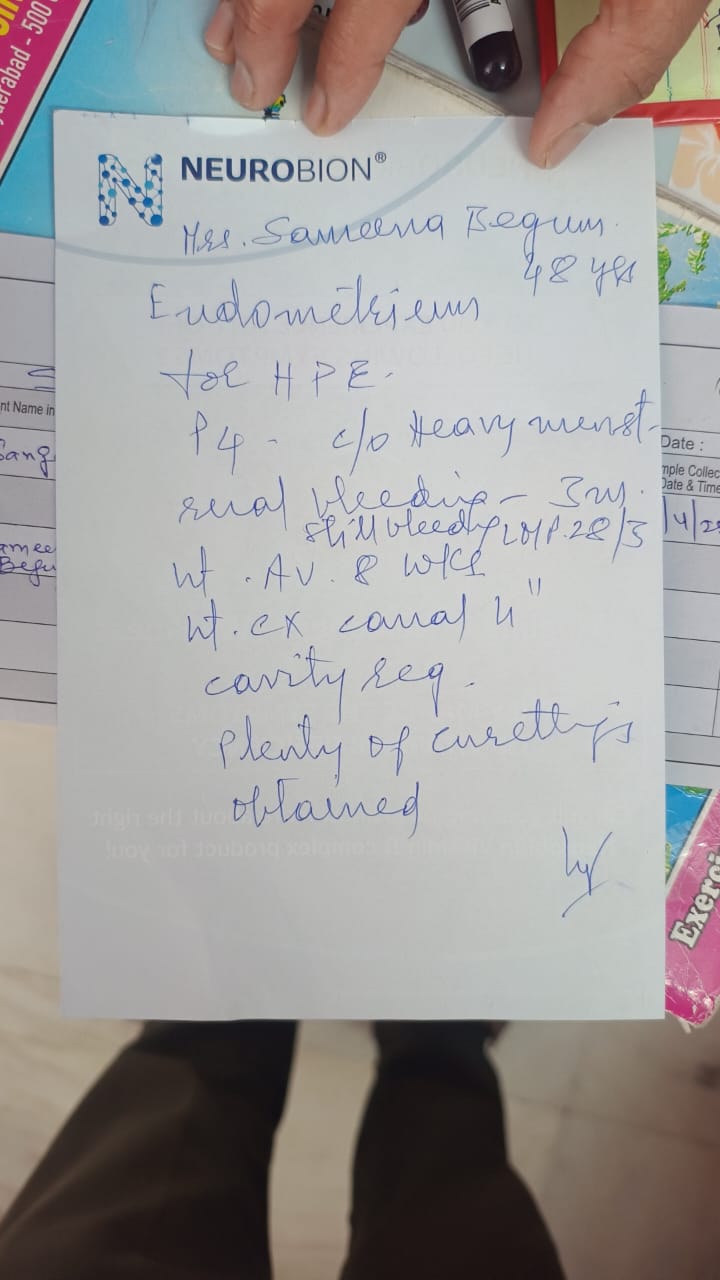 NEUROBION®
Mrs. Sameena Begum.
48 yrs
Endometrium
for HPE.
P4 - c/o Heavy menst-
rual bleeding -
still bleeding LMP. 28/3
ut. AV. 8 wks
ut. cx canal 4"
cavity reg.
Plenty of curettings
obtained
nt Name in
Date :
mple Collec
Date & Time
amee
Begu
derabad - 500
Exerci